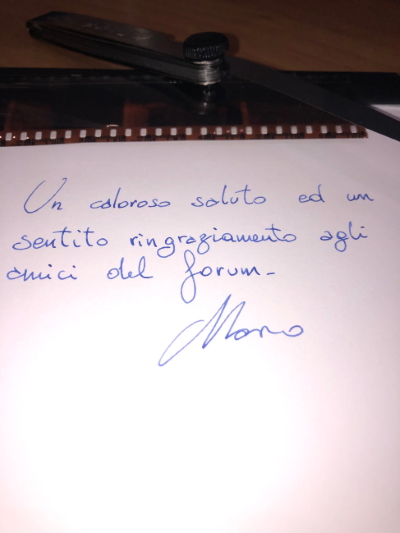 Un caloroso saluto ed un
sentito ringraziamento agli
amici del forum-